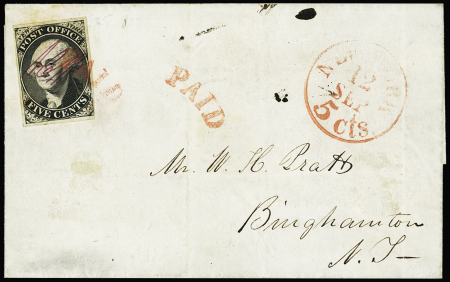 POST OFFICE
FIVE CENTS
PAID
NEW YORK
12
SEP
5 cts
Mr. W. H. Pratt
Binghamton
N. Y—